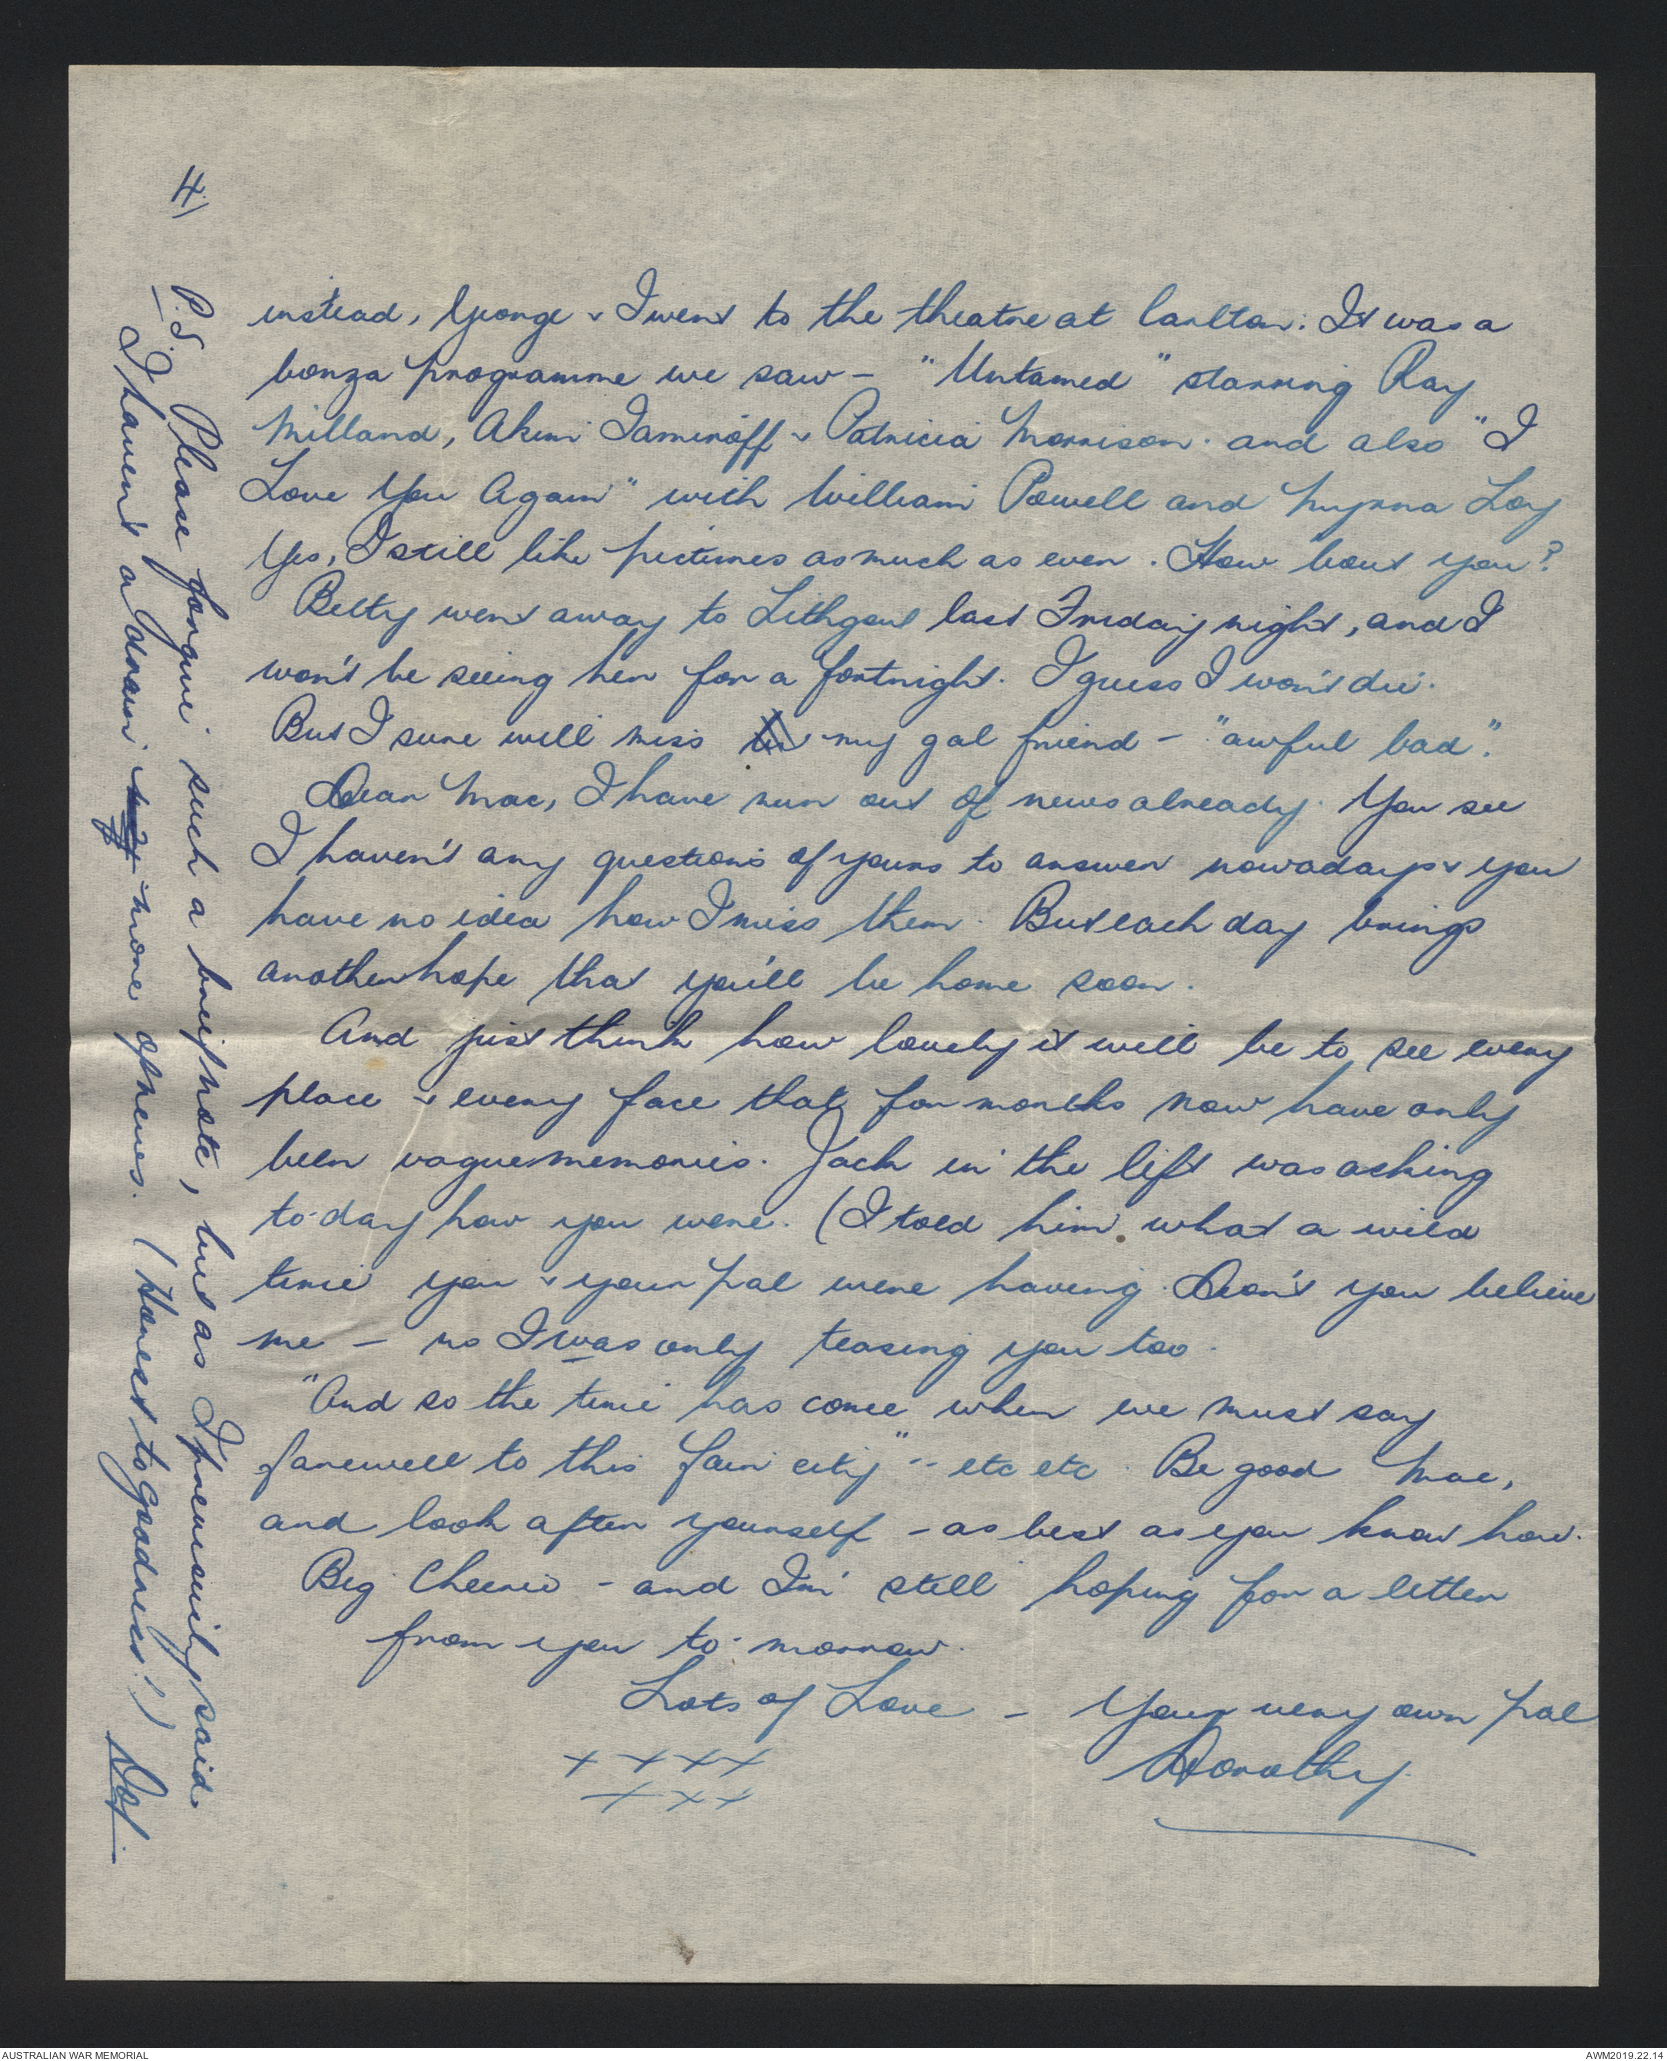 4)
instead, George & I went to the theatre at Carlton. It was a
bonza programme we saw - "Untamed" starring Ray
Milland, Akim Tamiroff & Patricia Morrison. and also "I
Love You Again" with William Powell and Myrna Loy
Yes, I still like pictures as much as ever. How bout you?
Betty went away to Lithgow last Friday night, and I
won't be seeing her for a fortnight. I guess I won't die.
But I sure will miss her my gal friend - "awful bad".
Dear Mac, I have run out of news already. You see
I haven't any questions of yours to answer nowadays & you
have no idea how I miss them. But each day brings
another hope that you'll be home soon.
And just think how lovely it will be to see every
place & every face that for months now have only
been vague memories. Jack in the lift was asking
to-day how you were. (I told him what a wild
time you & your pal were having. Don't you believe
me - no I was only teasing you too.
"And so the time has come when we must say
farewell to this fair city" -- etc etc. Be good Mac,
and look after yourself - as best as you know how.
Big Cheerio - and I'm still hoping for a letter
from you to-morrow.
Lots of Love - Your very own pal
Dorothy.
x x x x
x x x
P.S. Please forgive such a brief note, but as I previously said
I haven't a drain more of news. (Honest to goodness!) Dot
AUSTRALIAN WAR MEMORIAL
AWM2019.22.14